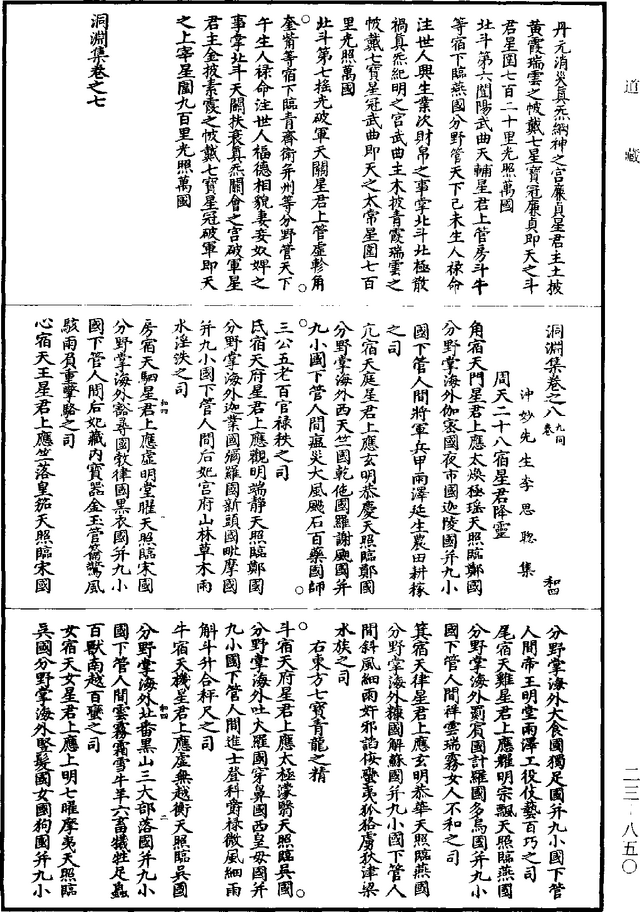 道藏
丹元消災真炁綱神之宮廉貞星君主土披
黃霞瑞雲之帔戴七星寶冠廉貞即天之斗
君星圍七百二十里光照萬國
北斗第六闓陽武曲天輔星君上管房斗牛
等宿下臨燕國分野管天下己未生人祿命
注世人興生業次財帛之事掌北斗北極散
禍真炁紀明之宮武曲主木披青霞瑞雲之
帔戴七寶星冠武曲即天之太常星圍七百
里光照萬國
北斗第七搖光破軍天關星君上管虛軫角
奎觜等宿下臨青齊衛并州等分野管天下
午生人祿命注世人福德相貌妻妾奴婢之
事掌北斗天關扶衰真炁關會之宮破軍星
君主金披素霞之帔戴七寶星冠破軍即天
之上宰星圍九百里光照萬國
洞淵集卷之七
洞淵集卷之八九同卷
和四
沖妙先生李思聰集
周天二十八宿星君降靈
角宿天門星君上應太煥極瑶天照臨鄭國
分野掌海外伽密國夜市國迦陵國并九小
國下管人間將軍兵甲雨澤延生農田耕稼
之司
亢宿天庭星君上應玄明恭慶天照臨鄭國
分野掌海外西天竺國乾他國羅謝颶國并
九小國下管人間瘟災大風飈石百藥國師
三公五老百官祿秩之司
氐宿天府星君上應觀明端靜天照臨鄭國
分野掌海外迦業國獦羅國新頭國毗摩國
并九小國下管人間后妃宮府山林草木雨
水淫泆之司
房宿天駟星君上應虛明堂曜天照臨宋國
分野掌海外谿尋國敦律國黑衣國并九小
國下管人間后妃藏內寶器金玉管籥驚風
駭雨負重擎駱之司
心宿天王星君上應竺落皇笳天照臨宋國
分野掌海外大食國獨足國并九小國下管
人間帝王明堂雨澤工役伎藝百巧之司
尾宿天雞星君上應耀明宗飄天照臨燕國
分野掌海外罽賓國計羅國多烏國并九小
國下管人間祥雲瑞霧女人不和之司
箕宿天律星君上應玄明恭華天照臨燕國
分野掌海外糠國解蘇國并九小國下管人
間斜風細雨奸邪謟佞蠻夷狐狢虜狄津梁
水族之司
右東方七寶青龍之精
斗宿天府星君上應太極濛翳天照臨吳國
分野掌海外吐火羅國穿鼻國西皇母國并
九小國下管人間進士登科爵祿微風細雨
斛斗升合秤尺之司
牛宿天機星君上應虛無越衡天照臨吳國
分野掌海外北番黑山三大部落國并九小
國下管人間雲霧霜雪牛羊六畜犧牲足蟲
百獸南越百蠻之司
女宿天女星君上應上明七曜摩夷天照臨
吳國分野掌海外堅髮國女國狗國并九小
二三‧八五〇